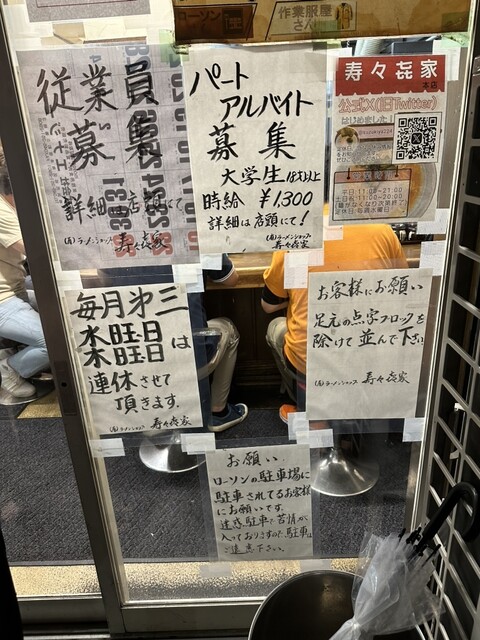 ローソン
作業服屋
さん
従業員
募集
詳細店頭にて
(有)ラーメンショップ 寿々㐂家
パート
アルバイト
募集
大学生 18才以上
時給 ¥1,300
詳細は店頭にて!
(有)ラーメンショップ
寿々㐂家
寿々㐂家
本店
公式X(旧Twitter)
はじめました!
営業時間
平日 11:00~21:00
定休日 毎週水曜日
毎月第三
水曜日
木曜日は
連休させて
頂きます.
(有)ラーメンショップ 寿々㐂家
お客様にお願い
足元の点字ブロックを
除けて並んで下さい
(有)ラーメンショップ 寿々㐂家
お願い
ローソンの駐車場に
駐車されてるお客様
にお願いです.
迷惑駐車で苦情が
入っておりますので、駐車は
ご遠慮下さい。